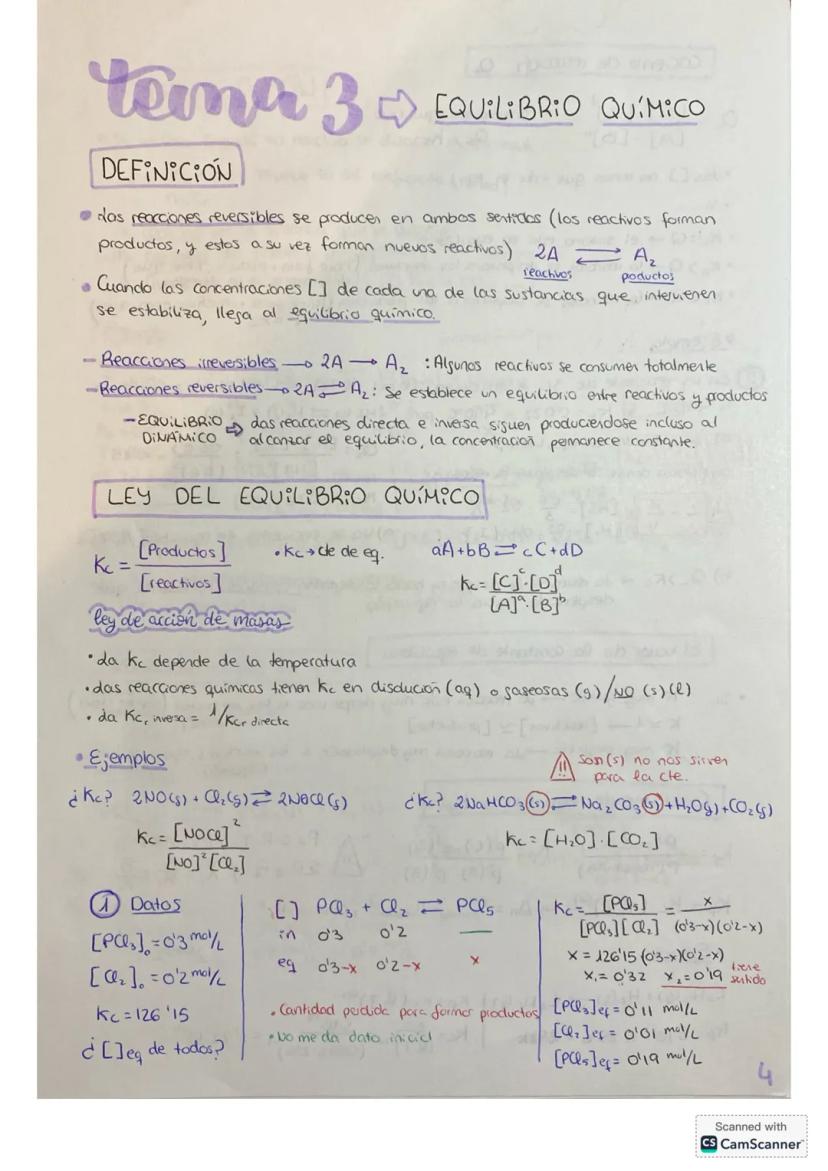 tema 3 ⇨ EQUILIBRIO QUÍMICO
DEFINICIÓN
• Las reacciones reversibles se producen en ambos sentidos (los reactivos forman
productos, y estos a su vez forman nuevos reactivos) 2A ⇌ A₂
reactivos poductos
• Cuando las concentraciones [] de cada una de las sustancias que intervienen
se estabiliza, llega al equilibrio químico.
- Reacciones irreversibles → 2A → A₂ : Algunos reactivos se consumen totalmente
- Reacciones reversibles → 2A ⇌ A₂ : Se establece un equilibrio entre reactivos y productos
- EQUILIBRIO DINÁMICO ⇨ Las reacciones directa e inversa siguen produciendose incluso al
alcanzar el equilibrio, la concentración permanece constante.
LEY DEL EQUILIBRIO QUÍMICO
Kc = [Productos] / [reactivos] • Kc → cte de eq. aA + bB ⇌ cC + dD
Kc = [C]ᶜ·[D]ᵈ / [A]ᵃ·[B]ᵇ
ley de acción de masas
• La Kc depende de la temperatura
• Las reacciones químicas tienen Kc en disolución (aq) o gaseosas (g) / NO (s) (l)
• La Kc, inversa = 1/Kc, directa
• Ejemplos
!! son (s) no nos sirven
para la cte.
¿Kc? 2NO(g) + Cl₂(g) ⇌ 2NOCl(g) ¿Kc? 2NaHCO₃(s) ⇌ Na₂CO₃(s) + H₂O(g) + CO₂(g)
Kc = [NOCl]² / [NO]²[Cl₂] Kc = [H₂O]·[CO₂]
① Datos
[PCl₃]₀ = 0'3 mol/L
[Cl₂]₀ = 0'2 mol/L
Kc = 126'15
¿[]eq de todos?
[] PCl₃ + Cl₂ ⇌ PCl₅
in 0'3 0'2 —
eq 0'3-x 0'2-x x
• Cantidad perdida para formar productos
• No me da dato inicial
Kc = [PCl₅] / [PCl₃][Cl₂] = x / (0'3-x)(0'2-x)
x = 126'15 (0'3-x)(0'2-x)
x₁ = 0'32 x₂ = 0'19 tiene sentido
[PCl₃]eq = 0'11 mol/L
[Cl₂]eq = 0'01 mol/L
[PCl₅]eq = 0'19 mol/L
4
Scanned with
CS CamScanner